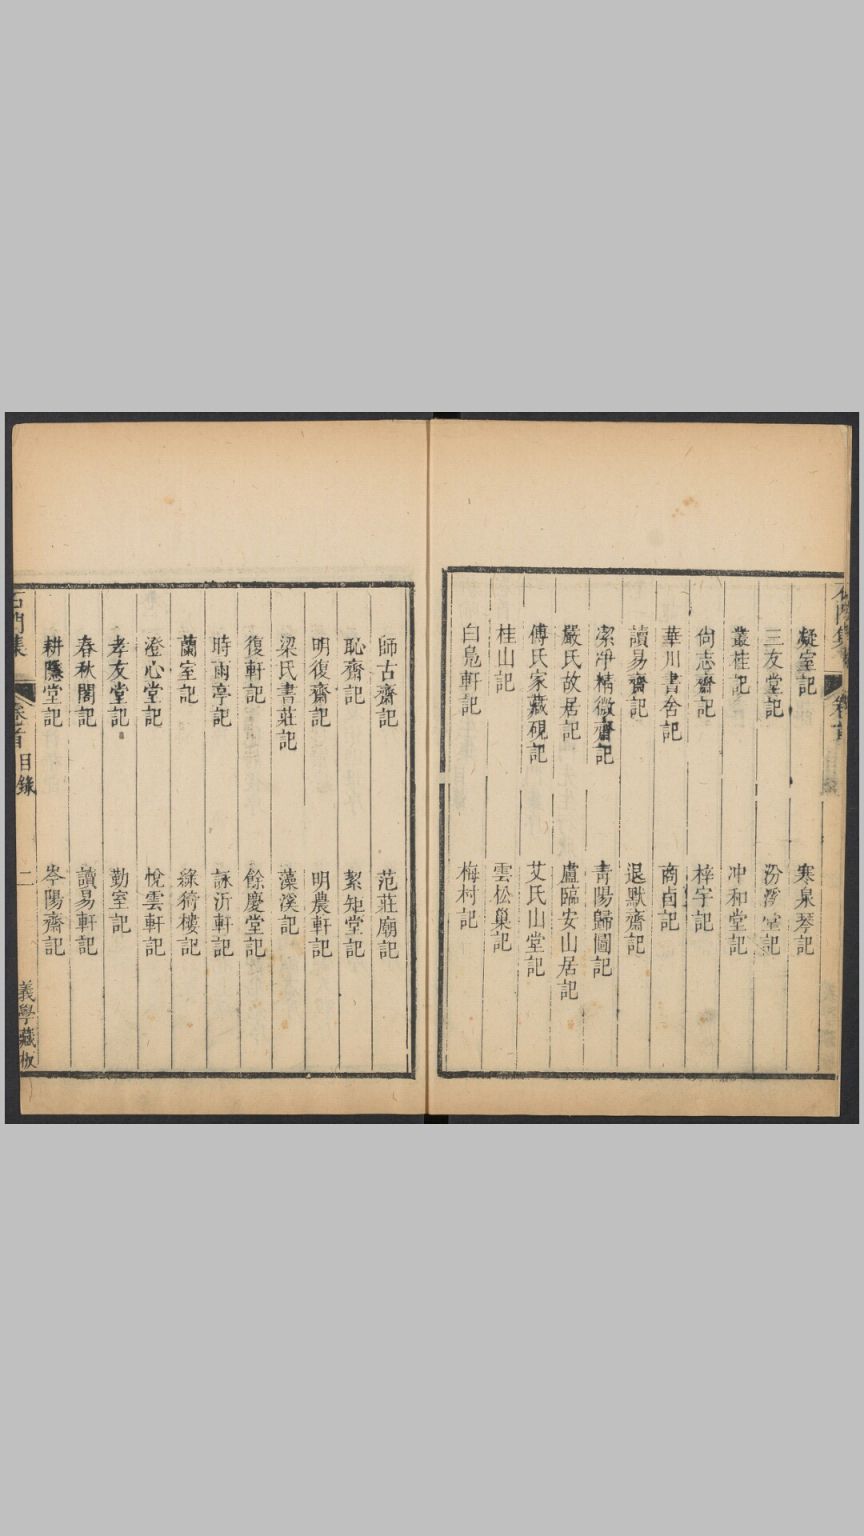 凝室記 寒泉琴記
三友堂記 堂記
叢桂記 冲和堂記
尙志齋記 梓字記
華川書舍記 商卣記
讀易齋記 退默齋記
潔淨精微齋記 靑陽歸圖記
嚴氏故居記 盧臨安山居記
傅氏家藏硯記 艾氏山堂記
桂山記 雲松巢記
白鳧軒記 梅村記
師古齋記 范莊廟記
恥齋記 絜矩堂記
明復齋記 明農軒記
梁氏書莊記 藻溪記
復軒記 餘慶堂記
時雨亭記 詠沂軒記
蘭室記 綠猗樓記
澄心堂記 悅雲軒記
孝友堂記 勤室記
春秋閣記 讀易軒記
耕隱堂記 岑陽齋記
石門集 卷首 目錄 二 義學藏板